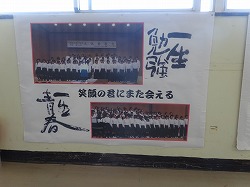 一生
勉強
笑顔の君にまた会える
一生
青春